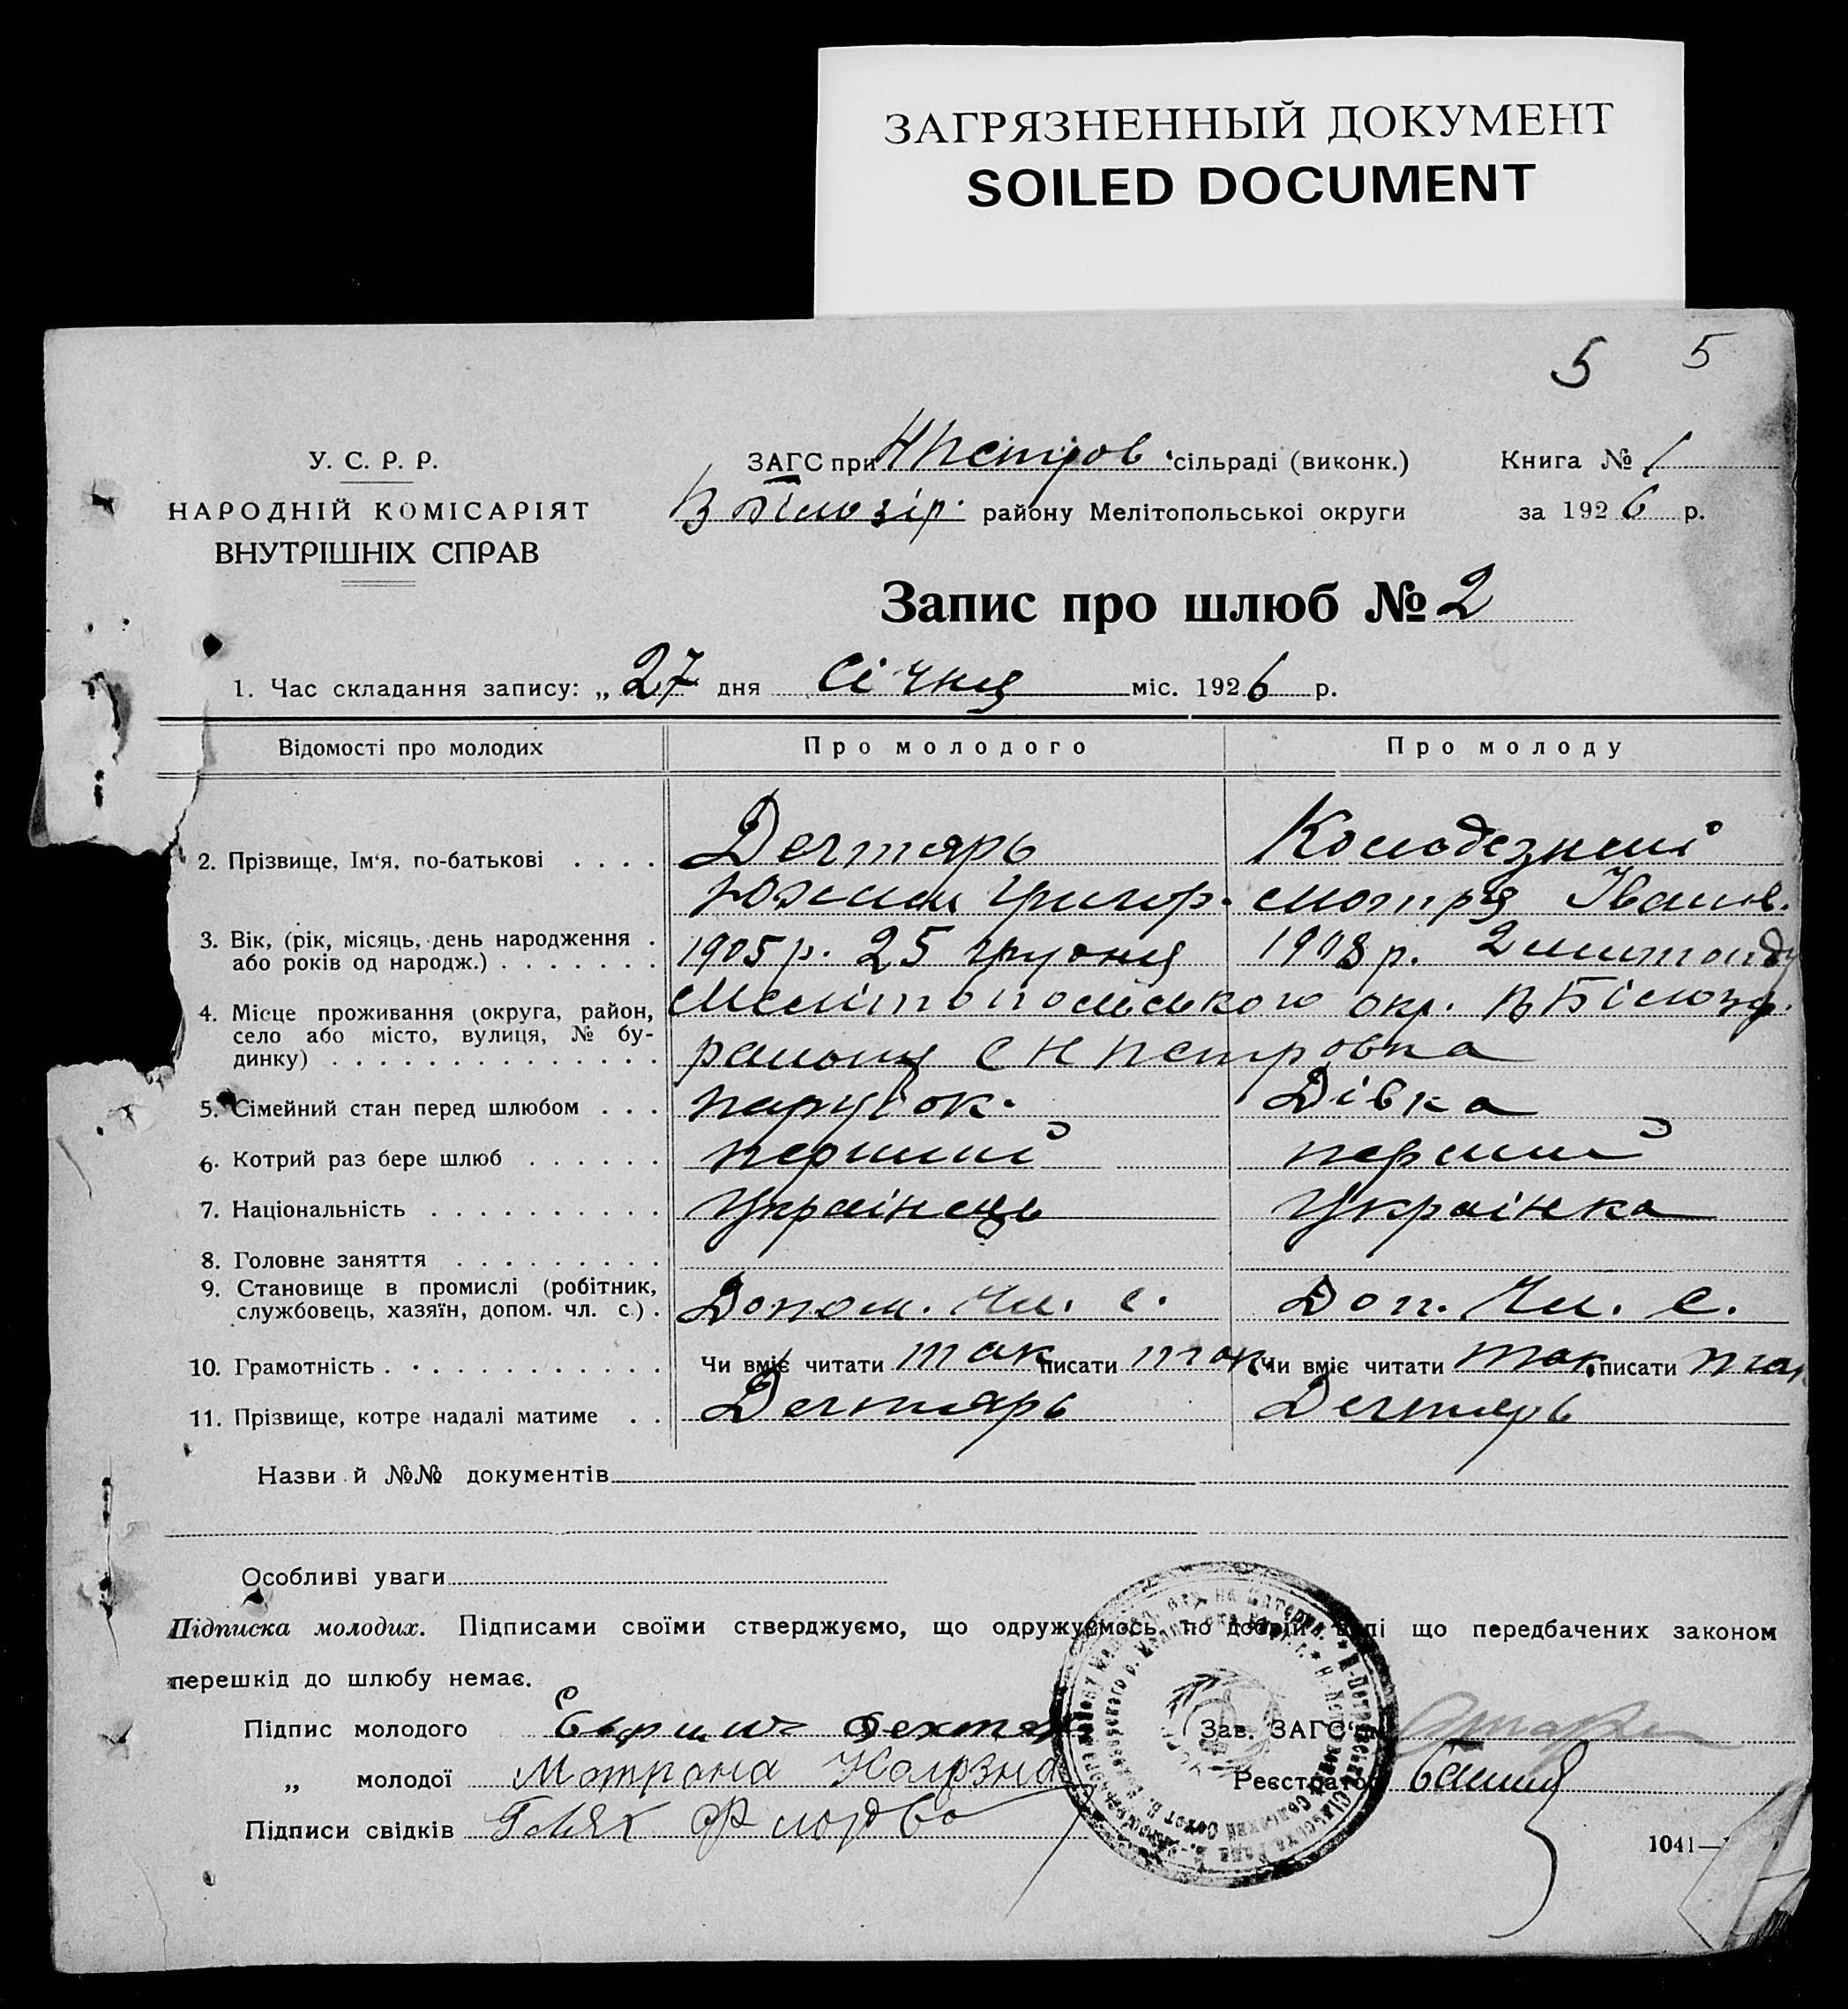 ЗАГРЯЗНЕННЫЙ ДОКУМЕНТ
SOILED DOCUMENT
5 5
У. С. Р. Р.
НАРОДНІЙ КОМІСАРІЯТ
ВНУТРІШНІХ СПРАВ
ЗАГС при НПетров сільраді (виконк.)
В Білозір. району Мелітопольської округи
Книга № 1
за 1926 р.
Запис про шлюб № 2
1. Час складання запису: „ 27 дня Січня міс. 1926 р.
Відомості про молодих
Про молодого
Про молоду
2. Прізвище, Ім'я, по-батькові . . . .
Дегтярь
Григор.
Колодезний
Мотря Іванов.
3. Вік, (рік, місяць, день народження .
або років од народж.) . . . . . . .
1905 р. 25 грудня
1908 р. 2 листопаду
4. Місце проживання (округа, район,
село або місто, вулиця, № бу-
динку) . . . . . . . . . . . . . .
Мелітопольського окр. В Білозір.
району с Н Петровка
5. Сімейний стан перед шлюбом . . .
парубок.
Дівка
6. Котрий раз бере шлюб . . . . . .
перший
перший
7. Національність . . . . . . . . . .
Українець
Українка
8. Головне заняття . . . . . . . . .
9. Становище в промислі (робітник,
службовець, хазяїн, допом. чл. с.) .
Допом. Чл. с.
Доп. Чл. с.
10. Грамотність . . . . . . . . . . . .
Чи вміє читати так писати так
Чи вміє читати так писати так
11. Прізвище, котре надалі матиме . .
Дегтярь
Дегтярь
Назви й №№ документів
Особливі уваги
Підписка молодих. Підписами своїми стверджуємо, що одружуємось по добрій волі що передбачених законом
перешкід до шлюбу немає.
Підпис молодого
Зав. ЗАГС'ом
„ молодої Мотрона
Реєстратор
Підписи свідків
1041—